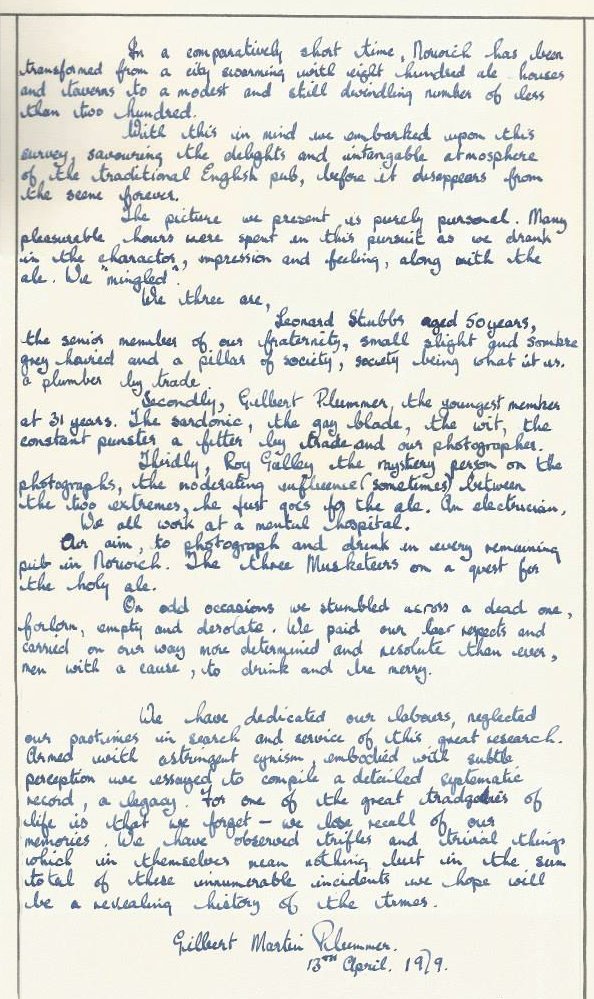 In a comparatively short time, Norwich has been
transformed from a city swarming with eight hundred ale houses
and taverns to a modest and still dwindling number of less
than two hundred.
With this in mind we embarked upon this
survey, savouring the delights and intangable atmosphere
of, the traditional English pub, before it disappears from
the scene forever.
The picture we present is purely pursonal. Many
pleasurable hours were spent in this pursuit as we drank
in the charactor, impression and feeling, along with the
ale. We "mingled".
We three are,
Leonard Stubbs aged 50 years,
the senior member of our fraternity, small slight and sombre
grey haired and a pillar of society, society being what it is.
a plumber by trade.
Secondly, Gilbert Plummer, the youngest member
at 31 years. The sardonic, the gay blade, the wit, the
constant punster a fitter by trade and our photographer.
Thirdly, Roy Galley the mystery person on the
photographs, the moderating influence (sometimes) between
the two extremes, he just goes for the ale. An electrician.
We all work at a mental hospital.
Our aim, to photograph and drink in every remaining
pub in Norwich. The Three Musketeers on a quest for
the holy ale.
On odd occasions we stumbled across a dead one,
forlorn, empty and desolate. We paid our last respects and
carried on our way more determined and resolute than ever,
men with a cause, to drink and be merry.
We have dedicated our labours, neglected
our pastimes in search and service of this great research.
Armed with astringent cynism, embodied with subtle
perception we essayed to compile a detailed systematic
record, a legacy. For one of the great tradgedies of
life is that we forget – we lose recall of our
memories. We have observed trifles and trivial things
which in themselves mean nothing but in the sum
total of these innumerable incidents we hope will
be a revealing history of the times.
Gilbert Martin Plummer.
13TH April. 1979.